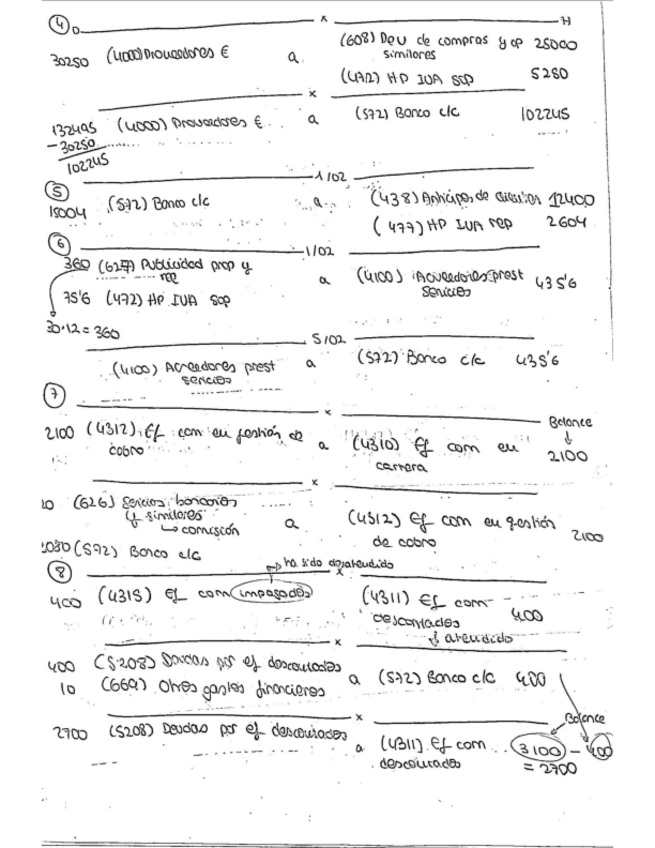 ④ D x H
30250 (4000) Proveedores € a (608) Dev de compras y op 25000
similares
(472) HP IVA SOP 5250
x
132495 (4000) Proveedores € a (572) Banco c/c 102245
- 30250
102245
⑤ 1/02
15004 (572) Banco c/c a (438) Anticipos de 12400
(477) HP IVA rep 2604
⑥ 1/02
360 (627) Publicidad prop y a (4100) Acreedores prest 435'6
RR servicios
75'6 (472) HP IVA SOP
30·12 = 360
5/02
(4100) Acreedores prest a (572) Banco c/c 435'6
servicios
⑦ x Balance
2100 (4312) Ef com en gestión de a (4310) Ef com en 2100
cobro cartera
x
(626) Servicios bancarios a (4312) Ef com en gestión 2100
y similares de cobro
↳ comisión
(572) Banco c/c
⑧ x → ha sido desatendido
400 (4315) Ef com impagados (4311) Ef com 400
descontados
↓ atendido
x
400 (5208) Deudas por ef descontados a (572) Banco c/c 400
10 (669) Otros gastos financieros
x Balance
2700 (5208) Deudas por ef descontados a (4311) Ef com 3100 - 400
descontados = 2700